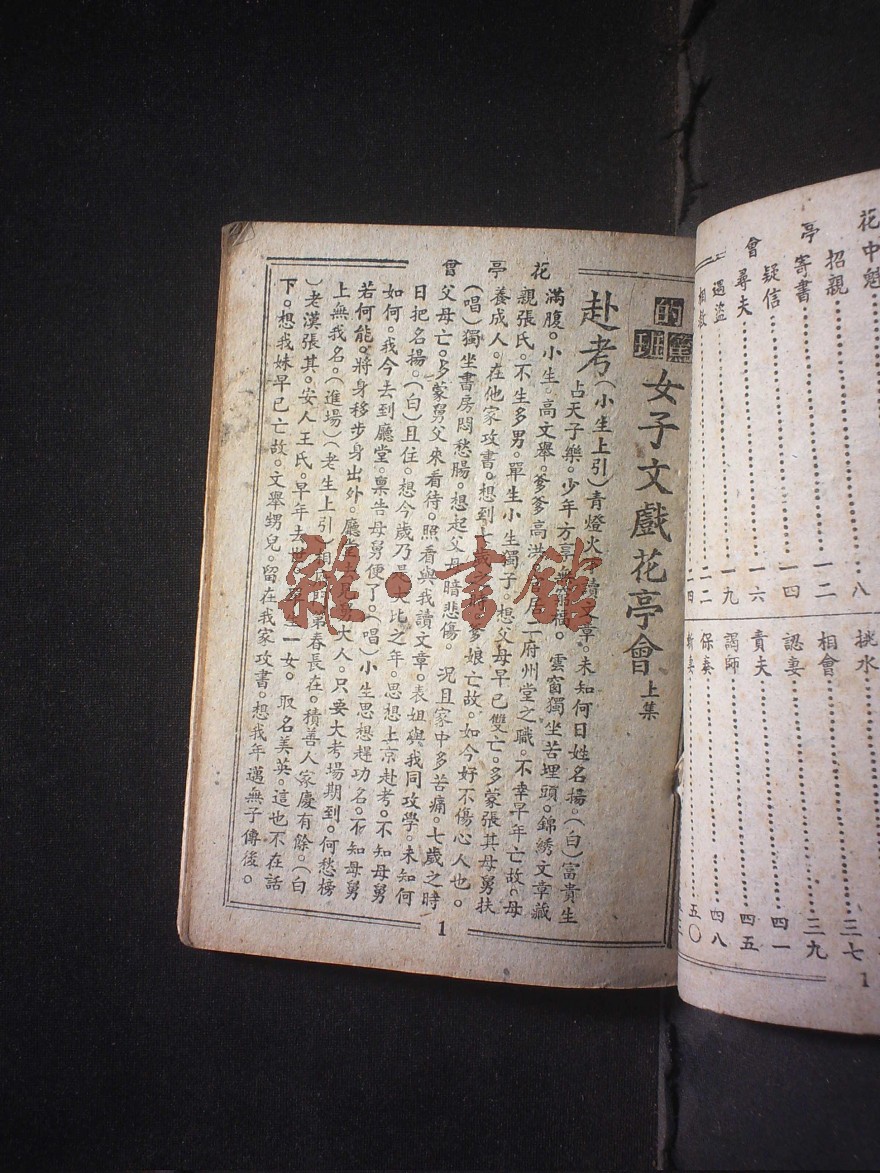 花中魁……八
招親……一二
亭
寄書……一四
會
疑信……一六
尋夫……一九
遇盜……二二
挑水……三七
相會……三九
認妻……四一
責夫……四五
謁師……四八
保奏……五〇
1
的
班
女子文戲花亭會 上集
赴考
(小生上引)青燈火 讀文章。未知何日姓名揚。(白)富貴生
占天子樂。少年方享無 福。雲窗獨坐苦埋頭。錦綉文章藏
花
滿腹。小生。高文舉。爹爹高洪。 居 府州堂之職。不幸早年亡故。母
親張氏。不生多男。單生小生獨子。想父母早已雙亡。多蒙張其母舅扶
亭
養成人。在他家攻書。想到七歲之時 爹娘亡故。如今好不傷心人也。
(唱)獨坐書房悶愁腸。想起父母暗悲傷。況且家中多苦痛。七歲之時
會
父母亡。多蒙舅父來看待。照看與我讀文章。表姐與我同攻學。未知何
日把名揚。(白)且住。想今歲乃是大比之年。思想上京赴考。不知母舅
如何。我今去到廳堂。稟告母舅便了。(唱)小生思想趕功名。不知母舅
若何能。將身移步身出外。廳堂 見 大人。只要大考場期到。何愁榜
上無我名。(進場)(老生上引) 春長在。積善人家慶有餘。(白
)老漢張其。安人王氏。早年去世。 一女。取名美英。這也不在話
下。想我妹早已亡故。文舉甥兒。留在我家攻書。想我年邁無子傳後。
1
雜·書館